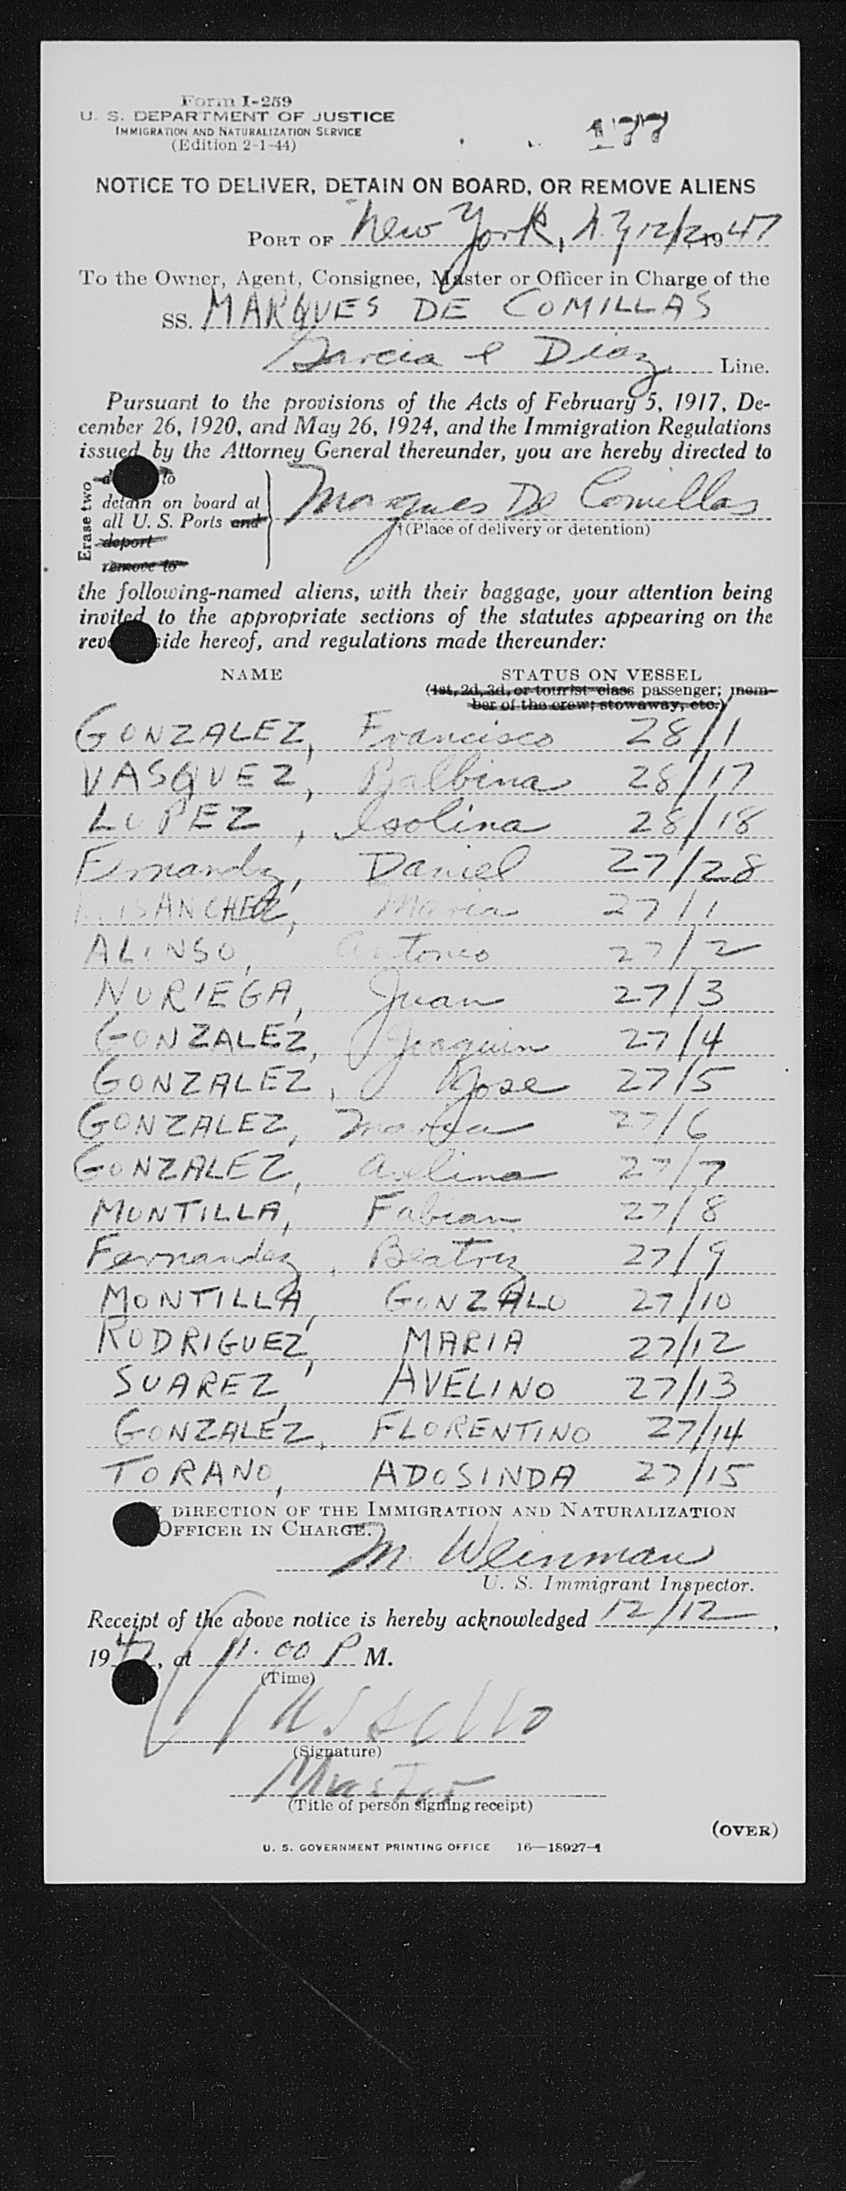 Form I-259
U. S. DEPARTMENT OF JUSTICE
IMMIGRATION AND NATURALIZATION SERVICE
(Edition 2-1-44)
177
NOTICE TO DELIVER, DETAIN ON BOARD, OR REMOVE ALIENS
PORT OF New York, N.Y. 12/12, 1947
To the Owner, Agent, Consignee, Master or Officer in Charge of the
SS. MARQUES DE COMILLAS
Garcia & Diaz Line.
Pursuant to the provisions of the Acts of February 5, 1917, De-
cember 26, 1920, and May 26, 1924, and the Immigration Regulations
issued by the Attorney General thereunder, you are hereby directed to
Erase two
to
detain on board at
all U. S. Ports and
deport
remove to
Marques De Comillas
†(Place of delivery or detention)
the following-named aliens, with their baggage, your attention being
invited to the appropriate sections of the statutes appearing on the
side hereof, and regulations made thereunder:
NAME STATUS ON VESSEL
(1st, 2d, 3d, or tourist class passenger; mem-
ber of the crew; stowaway, etc.)
GONZALEZ, Francisco 28/1
VASQUEZ, Balbina 28/17
LOPEZ, Isolina 28/18
Fernandz, Daniel 27/28
SANCHEZ, Maria 27/1
ALONSO, Antonio 27/2
NORIEGA, Juan 27/3
GONZALEZ, Joaquin 27/4
GONZALEZ, Jose 27/5
GONZALEZ, Maria 27/6
GONZALEZ, Avelina 27/7
MONTILLA, Fabian 27/8
Fernandez, Beatriz 27/9
MONTILLA, GONZALO 27/10
RODRIGUEZ, MARIA 27/12
SUAREZ, AVELINO 27/13
GONZALEZ, FLORENTINO 27/14
TORANO, ADOSINDA 27/15
DIRECTION OF THE IMMIGRATION AND NATURALIZATION
OFFICER IN CHARGE.
M. Weinman
U. S. Immigrant Inspector.
Receipt of the above notice is hereby acknowledged 12/12,
1947, at 11:00 P M.
(Time)
(Signature)
Master
(Title of person signing receipt)
(OVER)
U. S. GOVERNMENT PRINTING OFFICE 16—18927-1